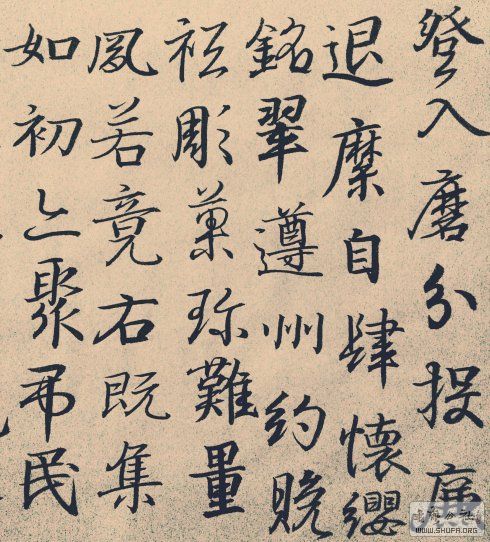 登入磨分投席
退縻自肆懷纓
銘翠遵州約晚
祗彫菓珎難量
夙若竟右既集
如初聚弔民
WWW.SHUFA.ORG